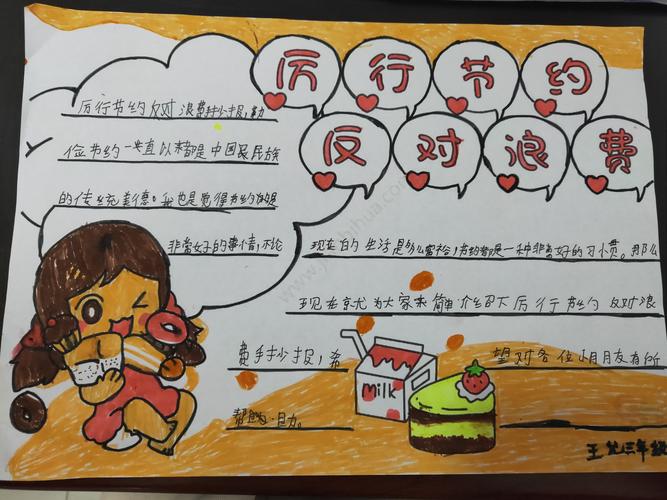 厉行节约
反对浪费
厉行节约反对浪费手抄报,勤
俭节约一直以来都是中国民族
的传统美德。我也是觉得节约
非常好的事情,不论
现在的生活是多么富裕,节约都是一种非常好的习惯。那么
现在就为大家来简单介绍下厉行节约反对浪
费手抄报,希
望对各位小朋友有所
帮助
Milk
王
三年级